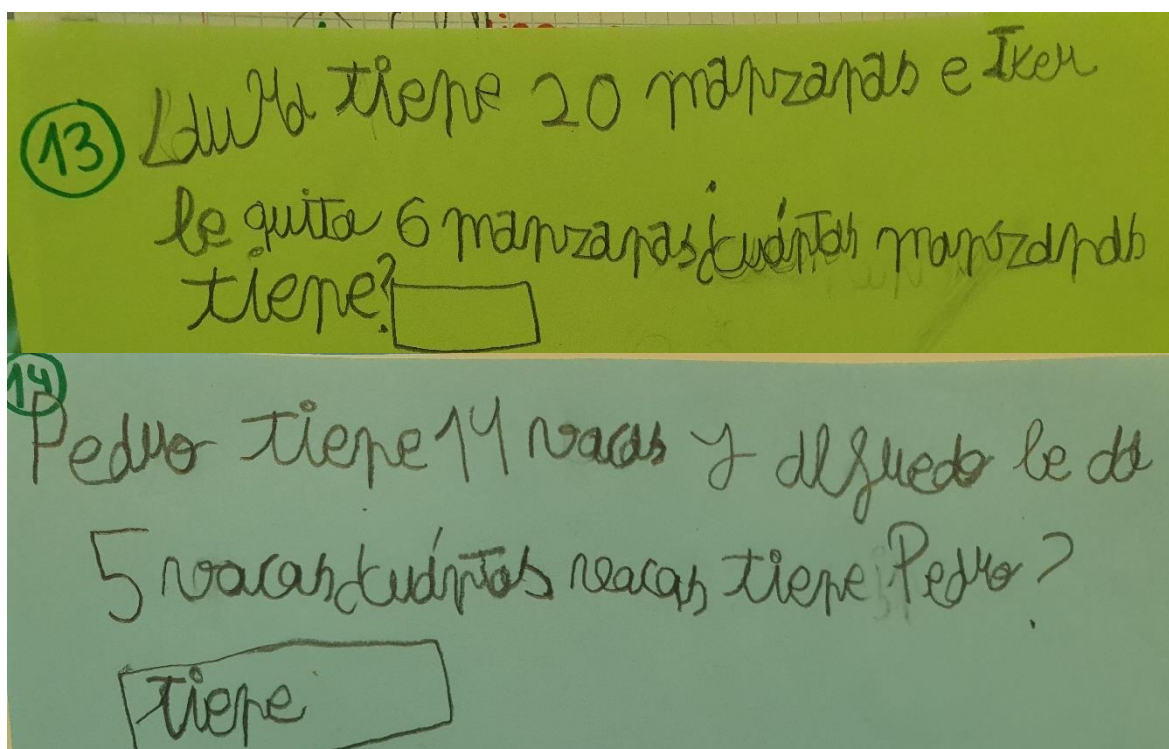 13 Laura tiene 20 manzanas e Iker
le quita 6 manzanas ¿cuántas manzanas
tiene?
14
Pedro tiene 14 vacas y alfredo le da
5 vacas ¿cuántas vacas tiene Pedro?
tiene